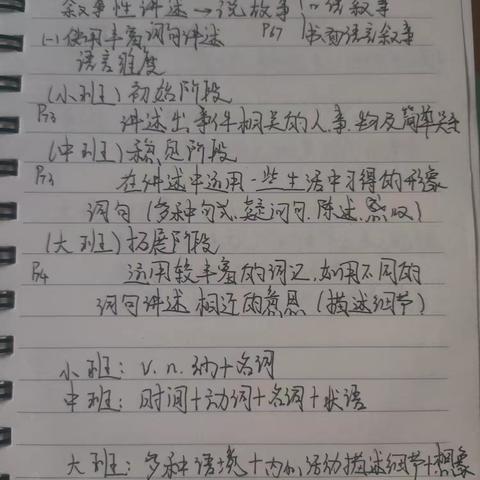 叙事性讲述→说故事 口语叙事
(一)使用丰富词句讲述 P67 书面语言叙事
语言维度
(小班)初始阶段
P73 讲述出事件相关的人.事.物及简单关系
(中班)稳定阶段
P73 在讲述中运用一些生活中习得的形象
词句(多种句式.疑问句.陈述.感叹)
(大班)拓展阶段
P74 运用较丰富的词汇.如用不同的
词句讲述相近的意思(描述细节)
小班: v. n. 的+名词
中班: 时间+动词+名词+状语
大班: 多种语境+内心活动描述细节+想象